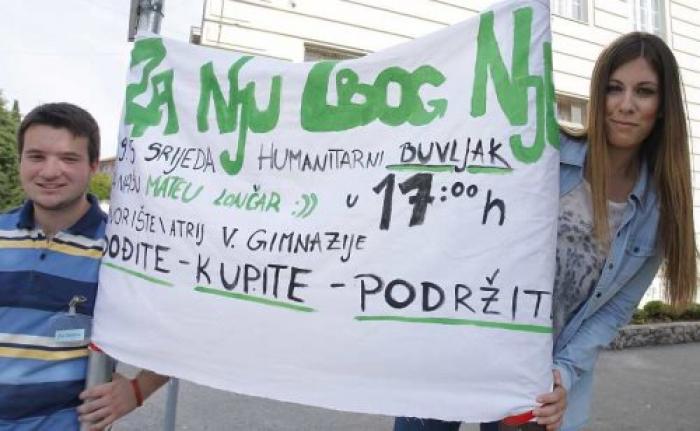 ZA NJU ZBOG
9.5 SRIJEDA HUMANITARNI BUVLJAK
NAŠU MATEU LONČAR :)) U 17:00h
VORIŠTE\ATRIJ V. GIMNAZIJE
DOĐITE - KUPITE - PODRŽIT